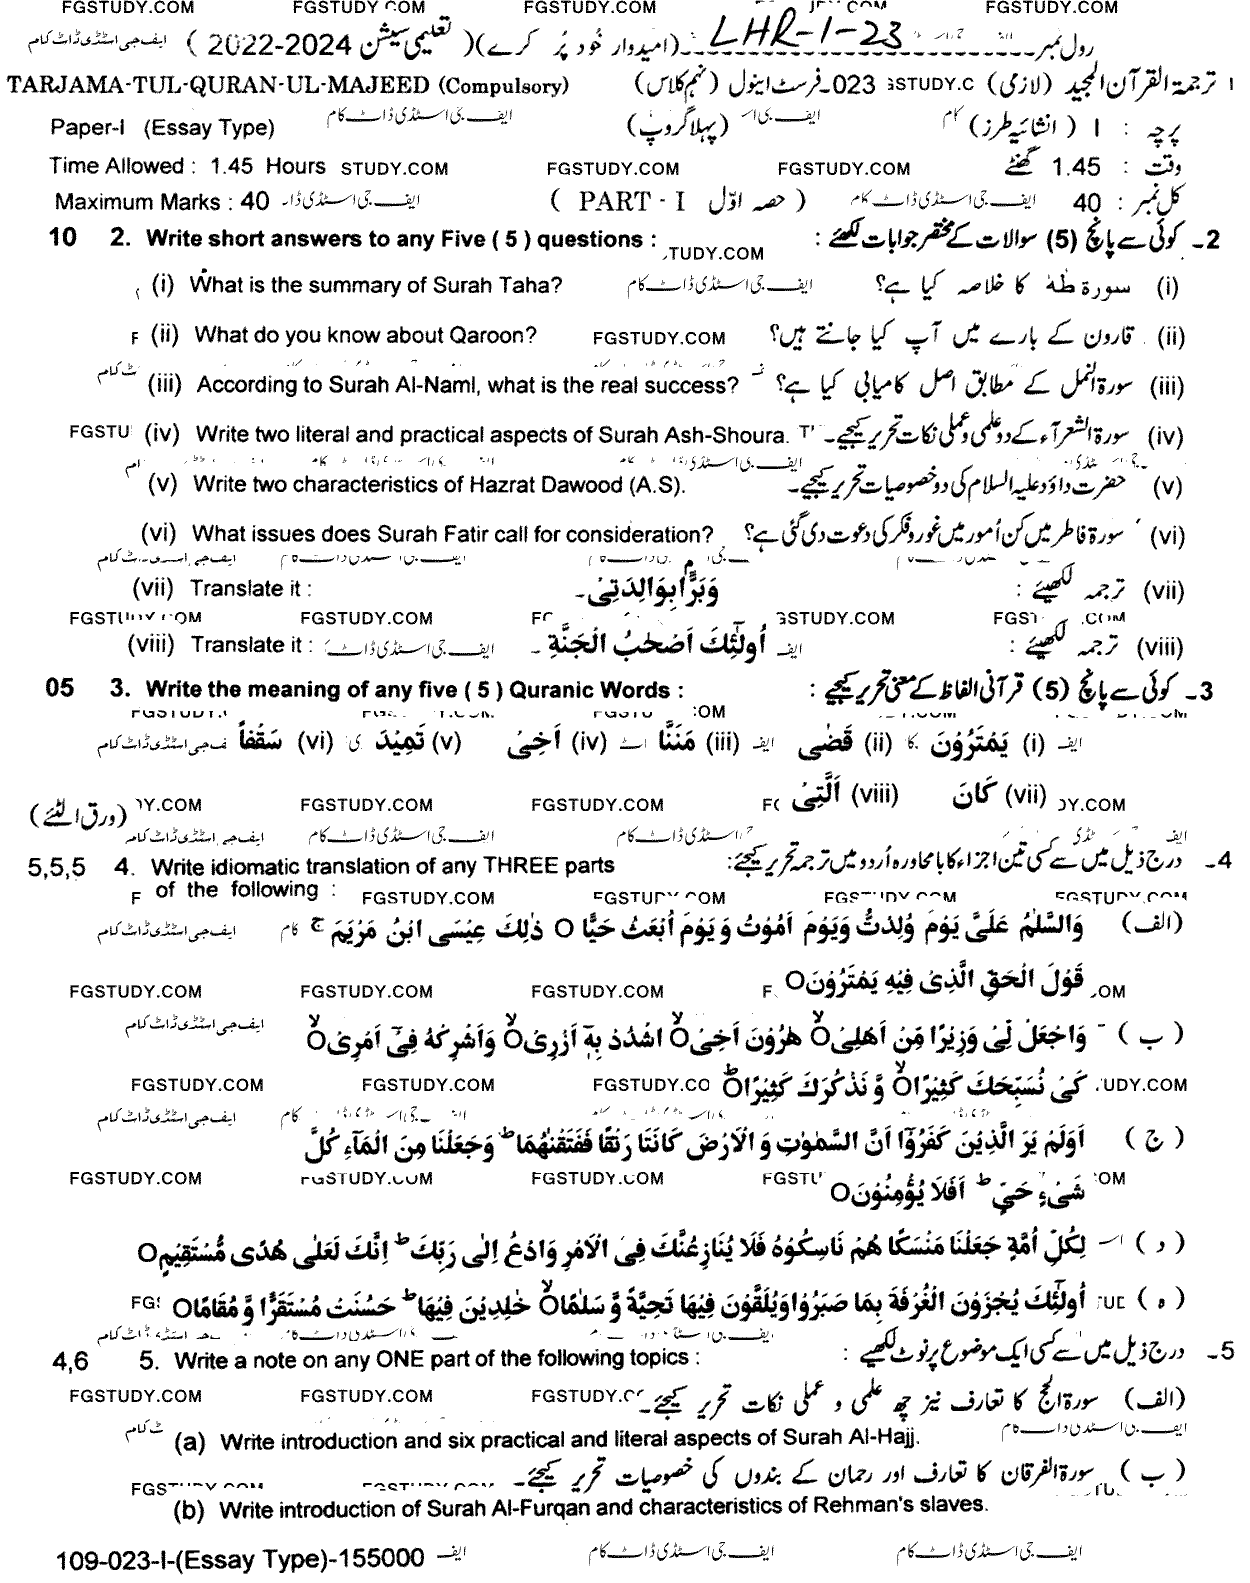 FGSTUDY.COM FGSTUDY.COM FGSTUDY.COM FGSTUDY.COM
رول نمبر LHR-1-23 (امیدوار خُود پُر کرے) (تعلیمی سیشن 2022-2024) ایف جی اسٹڈی ڈاٹ کام
TARJAMA-TUL-QURAN-UL-MAJEED (Compulsory) ترجمۃ القرآن المجید (لازمی) GSTUDY.C 023۔ فرسٹ اینول (نہم کلاس)
Paper-I (Essay Type) ایف جی اسٹڈی ڈاٹ کام پرچہ : I (انشائیہ طرز) (پہلا گروپ)
Time Allowed : 1.45 Hours STUDY.COM FGSTUDY.COM FGSTUDY.COM وقت : 1.45 گھنٹے
Maximum Marks : 40 ( PART - I حصہ اوّل ) ایف جی اسٹڈی ڈاٹ کام کل نمبر : 40
10 2. Write short answers to any Five ( 5 ) questions : TUDY.COM 2۔ کوئی سے پانچ (5) سوالات کے مختصر جوابات لکھئے :
(i) What is the summary of Surah Taha? ایف جی اسٹڈی ڈاٹ کام (i) سورۃ طٰہٰ کا خلاصہ کیا ہے؟
F (ii) What do you know about Qaroon? FGSTUDY.COM (ii) قارون کے بارے میں آپ کیا جانتے ہیں؟
(iii) According to Surah Al-Naml, what is the real success? (iii) سورۃ النمل کے مطابق اصل کامیابی کیا ہے؟
FGSTU (iv) Write two literal and practical aspects of Surah Ash-Shoura. (iv) سورۃ الشعرآء کے دو علمی و عملی نکات تحریر کیجیے۔
(v) Write two characteristics of Hazrat Dawood (A.S). (v) حضرت داؤد علیہ السلام کی دو خصوصیات تحریر کیجیے۔
(vi) What issues does Surah Fatir call for consideration? (vi) سورۃ فاطر میں کن اُمور میں غور و فکر کی دعوت دی گئی ہے؟
(vii) Translate it : وَبَرًّۢا بِوَالِدَتِیْ۔ (vii) ترجمہ لکھیئے :
FGSTUDY.COM FGSTUDY.COM GSTUDY.COM
(viii) Translate it : ایف جی اسٹڈی ڈاٹ اُولٰٓئِكَ اَصْحٰبُ الْجَنَّةِ ۔ (viii) ترجمہ لکھیئے :
05 3. Write the meaning of any five ( 5 ) Quranic Words : 3۔ کوئی سے پانچ (5) قرآنی الفاظ کے معنی تحریر کیجیے :
(i) یَمْتَرُوْنَ (ii) قَضٰی (iii) مَنَنَّا (iv) اَخِیْ (v) تَمِیْدَ (vi) سَقْفاً
(vii) كَانَ (viii) اَلَّتِیْ
DY.COM FGSTUDY.COM FGSTUDY.COM DY.COM
(ورق الٹئے)
5,5,5 4. Write idiomatic translation of any THREE parts 4۔ درج ذیل میں سے کسی تین اجزاء کا بامحاورہ اُردو میں ترجمہ تحریر کیجئے:
of the following : FGSTUDY.COM
(الف) وَالسَّلٰمُ عَلَیَّ یَوْمَ وُلِدْتُّ وَیَوْمَ اَمُوْتُ وَ یَوْمَ اُبْعَثُ حَیًّا O ذٰلِكَ عِیْسَی ابْنُ مَرْیَمَ ج
قَوْلَ الْحَقِّ الَّذِیْ فِیْهِ یَمْتَرُوْنَ O
FGSTUDY.COM FGSTUDY.COM FGSTUDY.COM
( ب ) وَاجْعَلْ لِّیْ وَزِیْرًا مِّنْ اَهْلِیْ O هٰرُوْنَ اَخِیْ O اشْدُدْ بِهٖٓ اَزْرِیْ O وَاَشْرِكْهُ فِیْٓ اَمْرِیْ O
كَیْ نُسَبِّحَكَ كَثِیْرًا O وَّ نَذْكُرَكَ كَثِیْرًا O
FGSTUDY.COM FGSTUDY.COM FGSTUDY.CO UDY.COM
( ج ) اَوَلَمْ یَرَ الَّذِیْنَ كَفَرُوْٓا اَنَّ السَّمٰوٰتِ وَ الْاَرْضَ كَانَتَا رَتْقًا فَفَتَقْنٰهُمَا ط وَجَعَلْنَا مِنَ الْمَآءِ كُلَّ
شَیْءٍ حَیٍّ ط اَفَلَا یُؤْمِنُوْنَ O
FGSTUDY.COM FGSTUDY.COM FGSTUDY.COM
( د ) لِكُلِّ اُمَّةٍ جَعَلْنَا مَنْسَكًا هُمْ نَاسِكُوْهُ فَلَا یُنَازِعُنَّكَ فِی الْاَمْرِ وَادْعُ اِلٰی رَبِّكَ ط اِنَّكَ لَعَلٰی هُدًی مُّسْتَقِیْمٍ O
( ہ ) اُولٰٓئِكَ یُجْزَوْنَ الْغُرْفَةَ بِمَا صَبَرُوْا وَیُلَقَّوْنَ فِیْهَا تَحِیَّةً وَّ سَلٰمًا O خٰلِدِیْنَ فِیْهَا ط حَسُنَتْ مُسْتَقَرًّا وَّ مُقَامًا O
4,6 5. Write a note on any ONE part of the following topics : 5۔ درج ذیل میں سے کسی ایک موضوع پر نوٹ لکھیے :
FGSTUDY.COM FGSTUDY.COM (الف) سورۃ الحج کا تعارف نیز چھ علمی و عملی نکات تحریر کیجئے۔
(a) Write introduction and six practical and literal aspects of Surah Al-Hajj.
( ب ) سورۃ الفرقان کا تعارف اور رحمان کے بندوں کی خصوصیات تحریر کیجئے۔
(b) Write introduction of Surah Al-Furqan and characteristics of Rehman's slaves.
109-023-I-(Essay Type)-155000 ایف ایف جی اسٹڈی ڈاٹ کام ایف جی اسٹڈی ڈاٹ کام